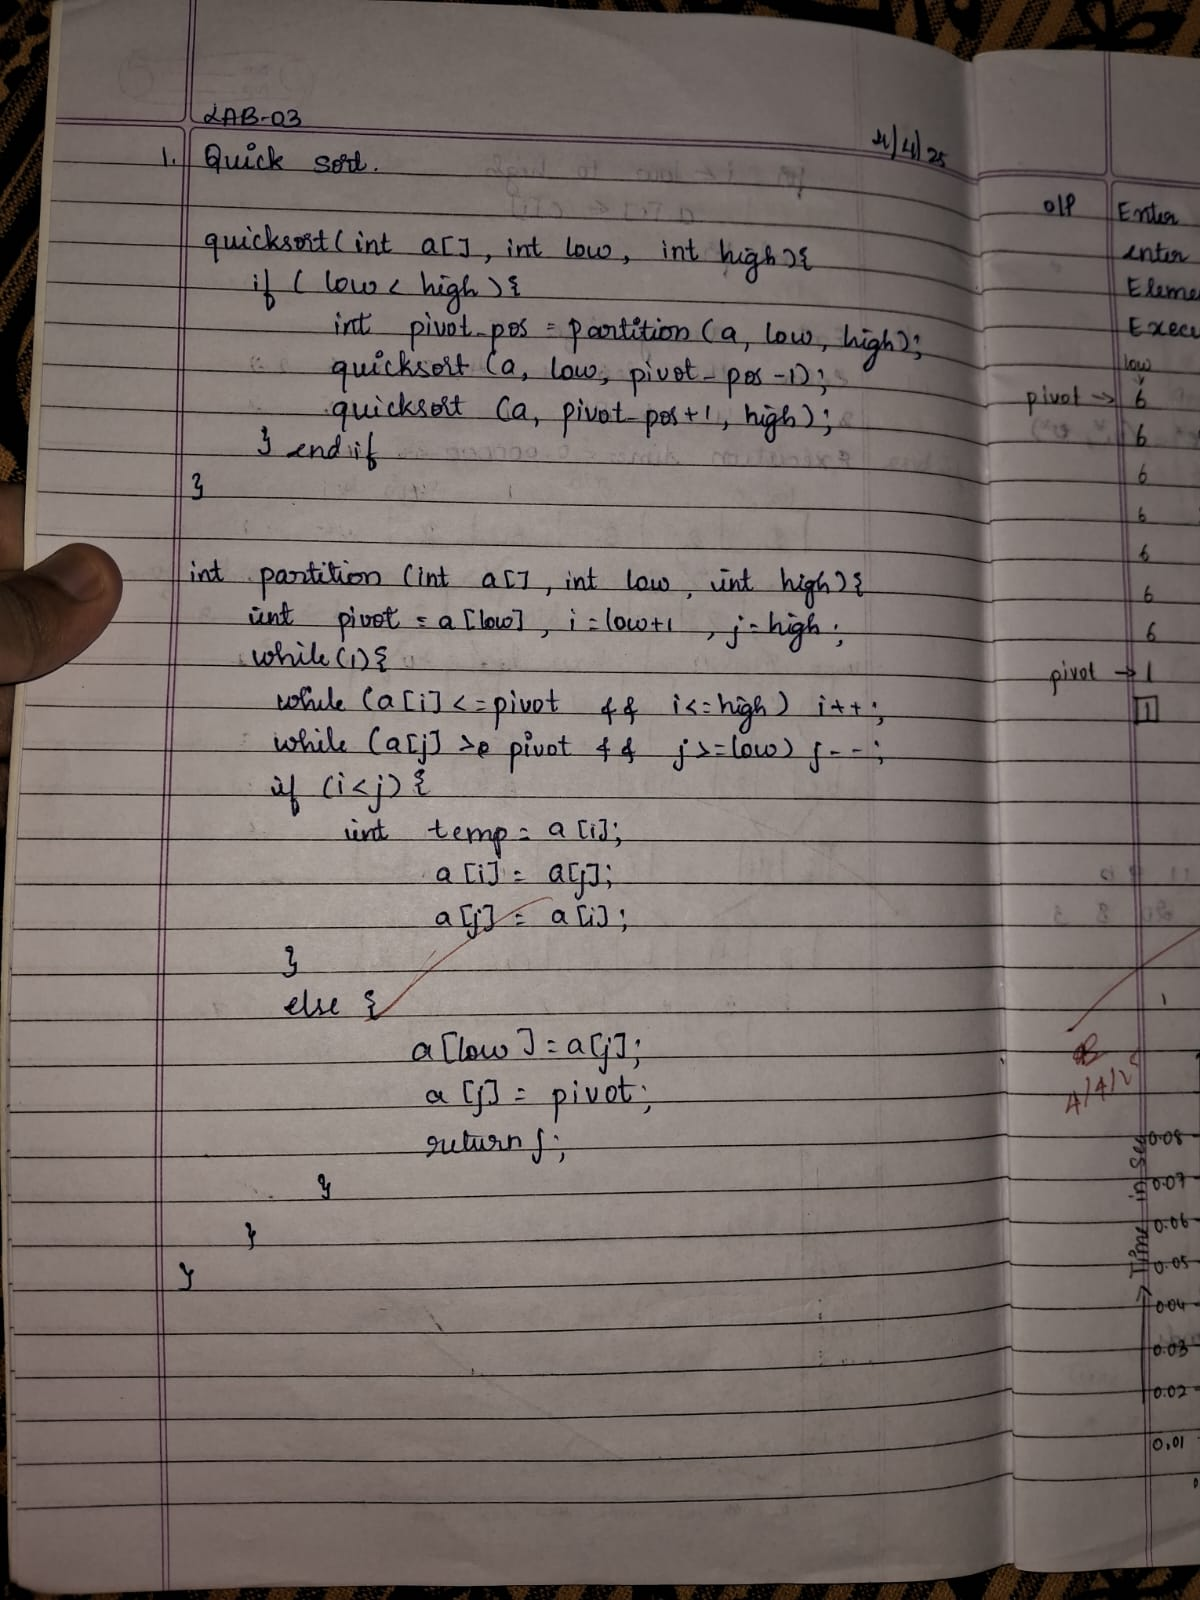 LAB-03
4/4/25
1. Quick sort.
quicksort(int a[], int low, int high){
if (low < high){
int pivot_pos = partition(a, low, high);
quicksort(a, low, pivot_pos-1);
quicksort(a, pivot_pos+1, high);
} endif
}
int partition(int a[], int low, int high){
int pivot = a[low], i=low+1, j=high;
while(1){
while (a[i]<=pivot && i<=high) i++;
while (a[j] >= pivot && j>=low) j--;
if (i<j){
int temp = a[i];
a[i] = a[j];
a[j] = a[i];
}
else {
a[low]=a[j];
a[j] = pivot;
return j;
}
}
}
O/P Enter
enter
Eleme
Execu
low
pivot → 6
6
6
6
6
6
6
pivot → 1
1
1
4/4/25
Time in sec
0.08
0.07
0.06
0.05
0.04
0.03
0.02
0.01